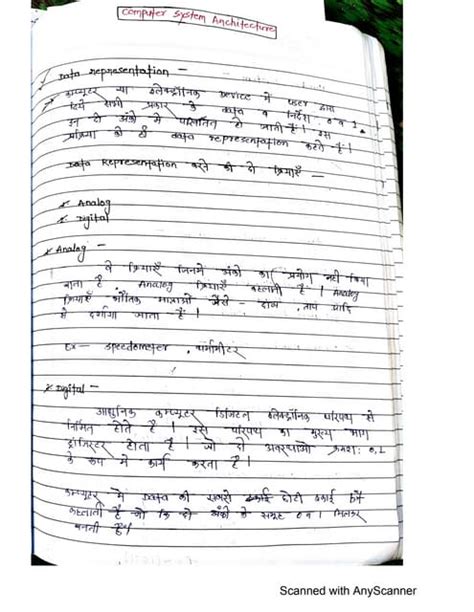 Computer System Architecture
Data representation -
कम्प्यूटर या इलेक्ट्रॉनिक Device में user द्वारा
दिये सभी प्रकार के data व निर्देश 0 व 1
इन दो अंको में परिवर्तित हो जाती है। इस
प्रक्रिया को ही data representation कहते हैं।
Data Representation करने की दो क्रियाएँ -
Analog
Digital
Analog -
वे क्रियाएँ जिनमें अंको का प्रयोग नहीं किया
जाता है Analog क्रियाएँ कहलाती हैं। Analog
क्रियाएँ भौतिक मात्राओं जैसे - दाब, ताप आदि
में दर्शाया जाता है।
Ex- speedometer, थर्मामीटर
Digital -
आधुनिक कम्प्यूटर डिजिटल इलेक्ट्रॉनिक परिपथ से
निर्मित होते हैं। इस परिपथ का मुख्य भाग
ट्रांजिस्टर होता है। जो दो अवस्थाओं क्रमशः 0,1
के रूप में कार्य करता है।
कम्प्यूटर में Data की सबसे छोटी इकाई bit
कहलाती है जो कि दो अंको के समूह 0 व 1 मिलकर
बनती है।
Scanned with AnyScanner